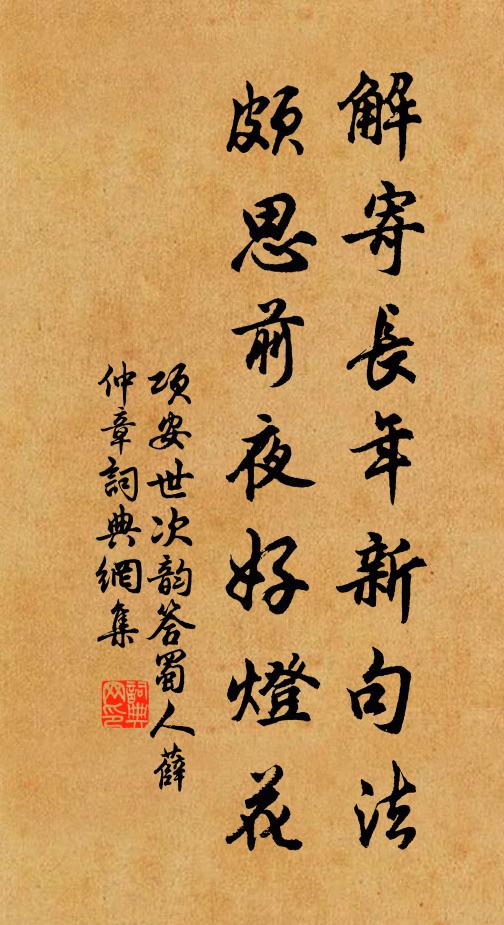 解寄長年新句法
頗思前夜好燈花
項安世次韵答蜀人薛
仲章詞典網集
詞典网印